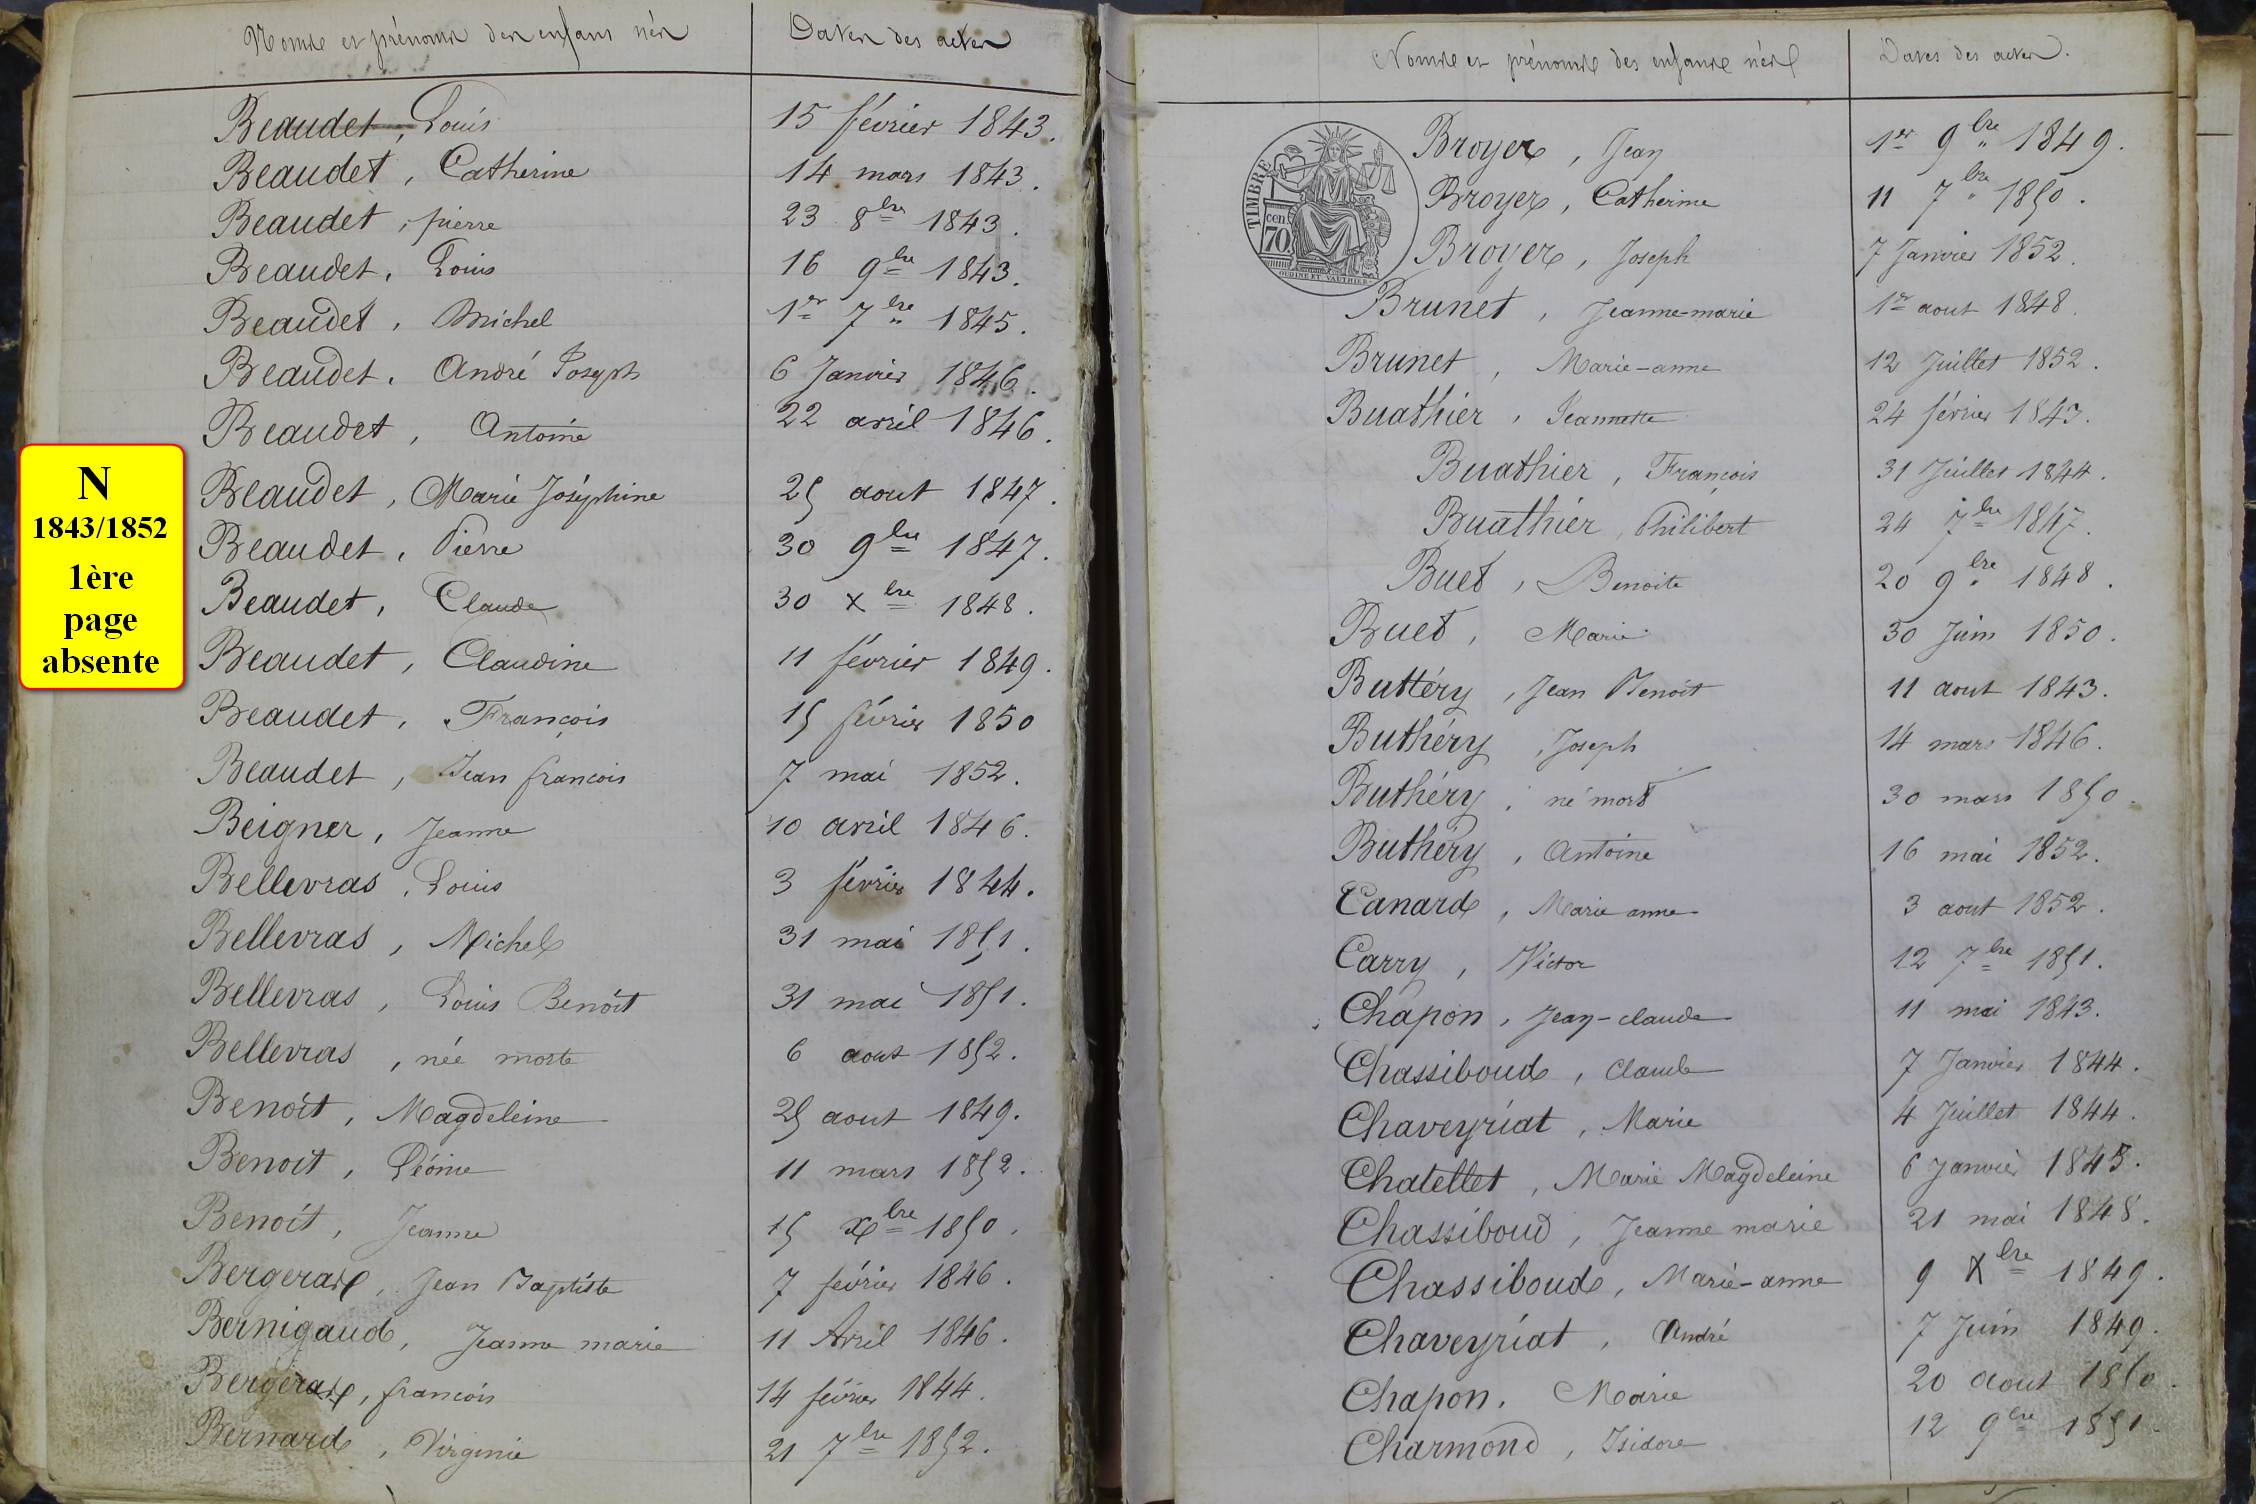 Noms et prénoms des enfans nés
Dates des actes
Beaudet, Louis 15 février 1843.
Beaudet, Catherine 14 mars 1843.
Beaudet, pierre 23 8bre 1843.
Beaudet, Louis 16 9bre 1843.
Beaudet, Michel 1er 7bre 1845.
Beaudet, André Joseph 6 Janvier 1846.
Beaudet, Antoine 22 avril 1846.
Beaudet, Marie Joséphine 25 aout 1847.
Beaudet, Pierre 30 9bre 1847.
Beaudet, Claude 30 Xbre 1848.
Beaudet, Claudine 11 février 1849.
Beaudet, François 15 février 1850
Beaudet, Jean françois 7 mai 1852.
Beigner, Jeanne 10 avril 1846.
Bellevras, Louis 3 février 1844.
Bellevras, Michel 31 mai 1851.
Bellevras, Louis Benoit 31 mai 1851.
Bellevras, née morte 6 aout 1852.
Benoit, Magdeleine 25 aout 1849.
Benoit, Léonie 11 mars 1852.
Benoit, Jeanne 15 xbre 1850.
Bergerard, Jean Baptiste 7 février 1846.
Bernigaud, Jeanne marie 11 Avril 1846.
Bergerard, françois 14 février 1844.
Bernard, Virginie 21 7bre 1852.
N
1843/1852
1ère
page
absente
Noms et prénoms des enfans nés
Dates des actes.
TIMBRE
70 cen
OUDINE ET VAUTHIER
Broyer, Jean 1er 9bre 1849.
Broyer, Catherine 11 7bre 1850.
Broyer, Joseph 7 Janvier 1852.
Brunet, Jeanne-marie 1er aout 1848.
Brunet, Marie-anne 12 Juillet 1852.
Buathier, Jeannette 24 février 1843.
Buathier, François 31 Juillet 1844.
Buathier, Philibert 24 7bre 1847.
Buet, Benoite 20 9bre 1848.
Buet, Marie 30 Juin 1850.
Buttéry, Jean Benoit 11 aout 1843.
Buthéry, Joseph 14 mars 1846.
Buthéry, né mort 30 mars 1850.
Buthéry, Antoine 16 mai 1852.
Canard, Marie anne 3 aout 1852.
Carry, Victor 12 7bre 1851.
Chapon, Jean-claude 11 mai 1843.
Chassiboud, Claude 7 Janvier 1844.
Chaveyriat, Marie 4 Juillet 1844.
Chatellet, Marie Magdeleine 6 Janvier 1845.
Chassiboud, Jeanne marie 21 mai 1848.
Chassiboud, Marie-anne 9 Xbre 1849.
Chaveyriat, André 7 Juin 1849.
Chapon, Marie 20 aout 1850.
Charmond, Isidore 12 9bre 1851.